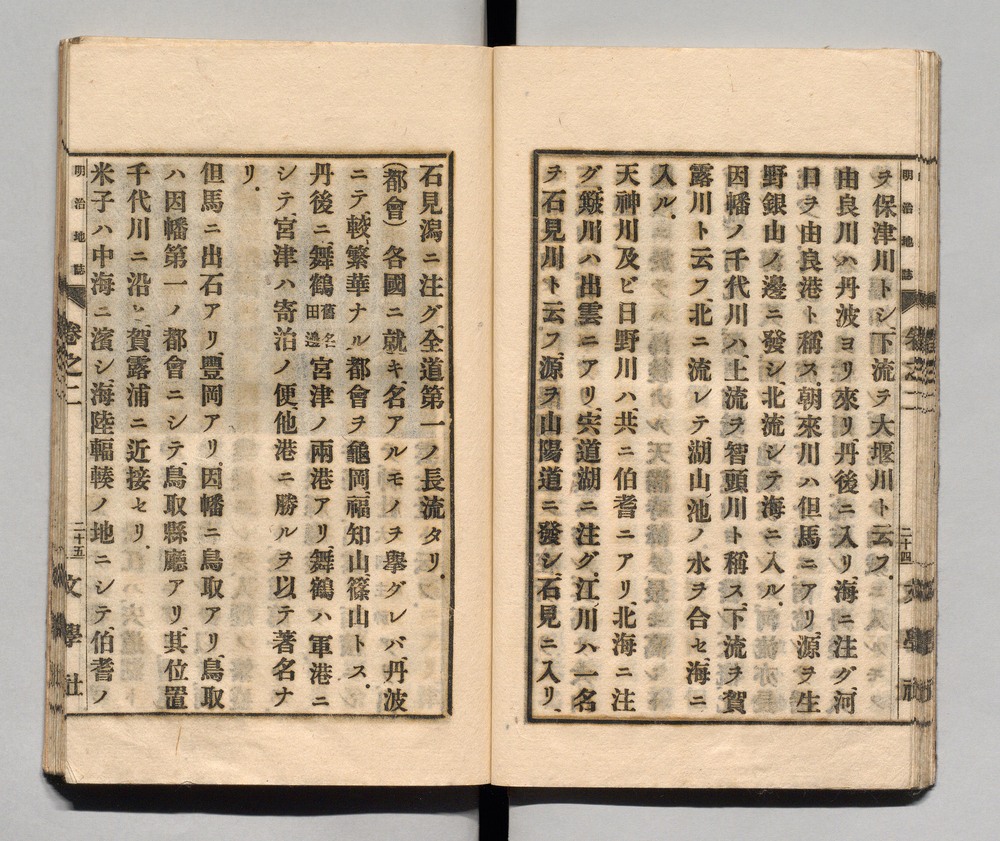 明治地誌 卷之二 二十四 文學社
ヲ保津川トシ、下流ヲ大堰川ト云フ。
由良川ハ丹波ヨリ來リ、丹後ニ入リ海ニ注グ、河
口ヲ由良港ト稱ス、朝來川ハ但馬ニアリ、源ヲ生
野銀山ノ邊ニ發シ、北流シテ海ニ入ル。
因幡ノ千代川ハ、上流ヲ智頭川ト稱ス、下流ヲ賀
露川ト云フ、北ニ流レテ、湖山池ノ水ヲ合セ、海ニ
入ル。
天神川及ビ日野川ハ共ニ伯耆ニアリ、北海ニ注
グ、簸川ハ出雲ニアリ、宍道湖ニ注グ、江川ハ一名
ヲ石見川ト云フ、源ヲ山陽道ニ發シ、石見ニ入リ、
石見潟ニ注グ、全道第一ノ長流タリ。
(都會) 各國ニ就キ、名アルモノヲ擧グレバ、丹波
ニテ較繁華ナル都會ヲ龜岡、福知山、篠山トス。
丹後ニ舞鶴舊名田邊宮津ノ兩港アリ、舞鶴ハ軍港ニ
シテ、宮津ハ寄泊ノ便、他港ニ勝ルヲ以テ著名ナ
リ。
但馬ニ出石アリ、豐岡アリ、因幡ニ鳥取アリ、鳥取
ハ因幡第一ノ都會ニシテ、鳥取縣廳アリ、其位置
千代川ニ沿ヒ、賀露浦ニ近接セリ。
米子ハ中海ニ濱シ、海陸輻輳ノ地ニシテ、伯耆ノ
明治地誌 卷之二 二十五 文學社